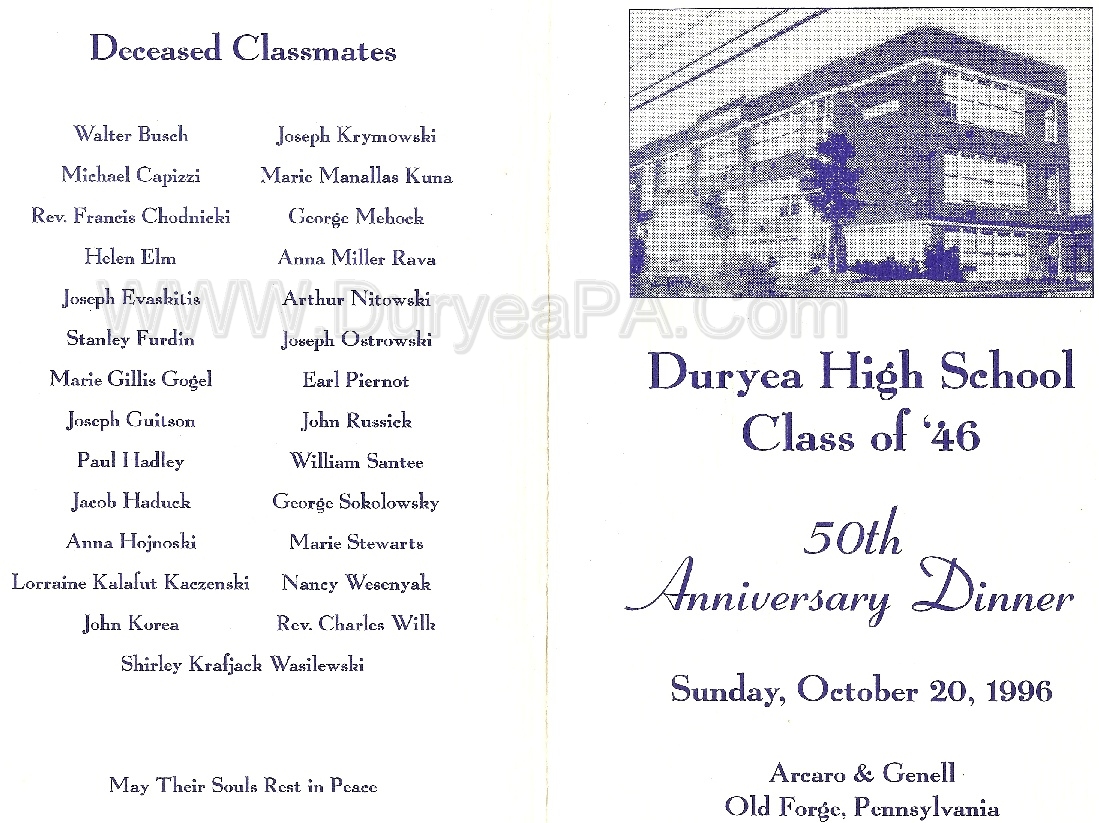 Deceased Classmates
Walter Busch
Michael Capizzi
Rev. Francis Chodnicki
Helen Elm
Joseph Evaskitis
Stanley Furdin
Marie Gillis Gogel
Joseph Guitson
Paul Hadley
Jacob Haduck
Anna Hojnoski
Lorraine Kalafut Kaczenski
John Korea
Joseph Krymowski
Marie Manallas Kuna
George Mehock
Anna Miller Rava
Arthur Nitowski
Joseph Ostrowski
Earl Piernot
John Russick
William Santee
George Sokolowsky
Marie Stewarts
Nancy Wesenyak
Rev. Charles Wilk
Shirley Krafjack Wasilewski
May Their Souls Rest in Peace
WWW.DuryeaPA.Com
Duryea High School
Class of '46
50th
Anniversary Dinner
Sunday, October 20, 1996
Arcaro & Genell
Old Forge, Pennsylvania